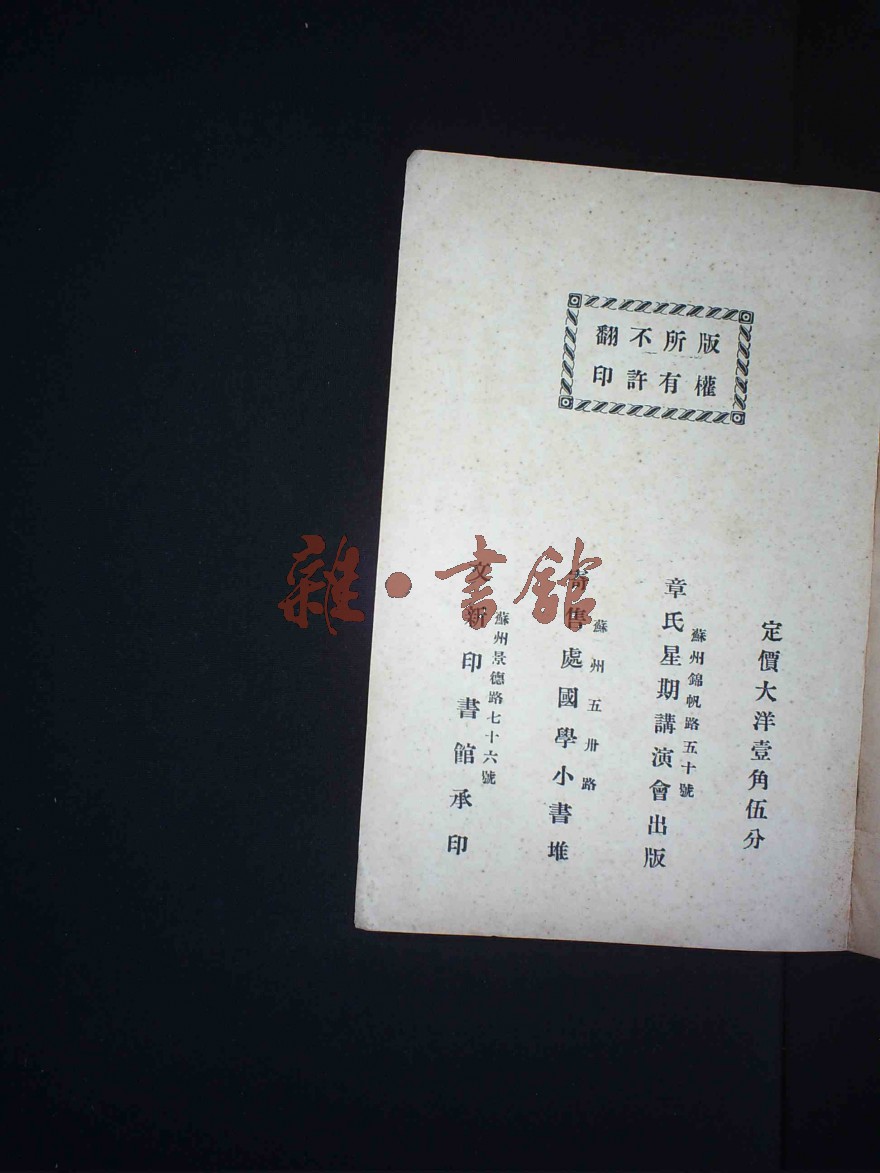 版權所有不許翻印
定價大洋壹角伍分
章氏星期講演會出版
蘇州錦帆路五十號
寄售處國學小書堆
蘇州五卅路
文新印書館承印
蘇州景德路七十六號
雜·書館